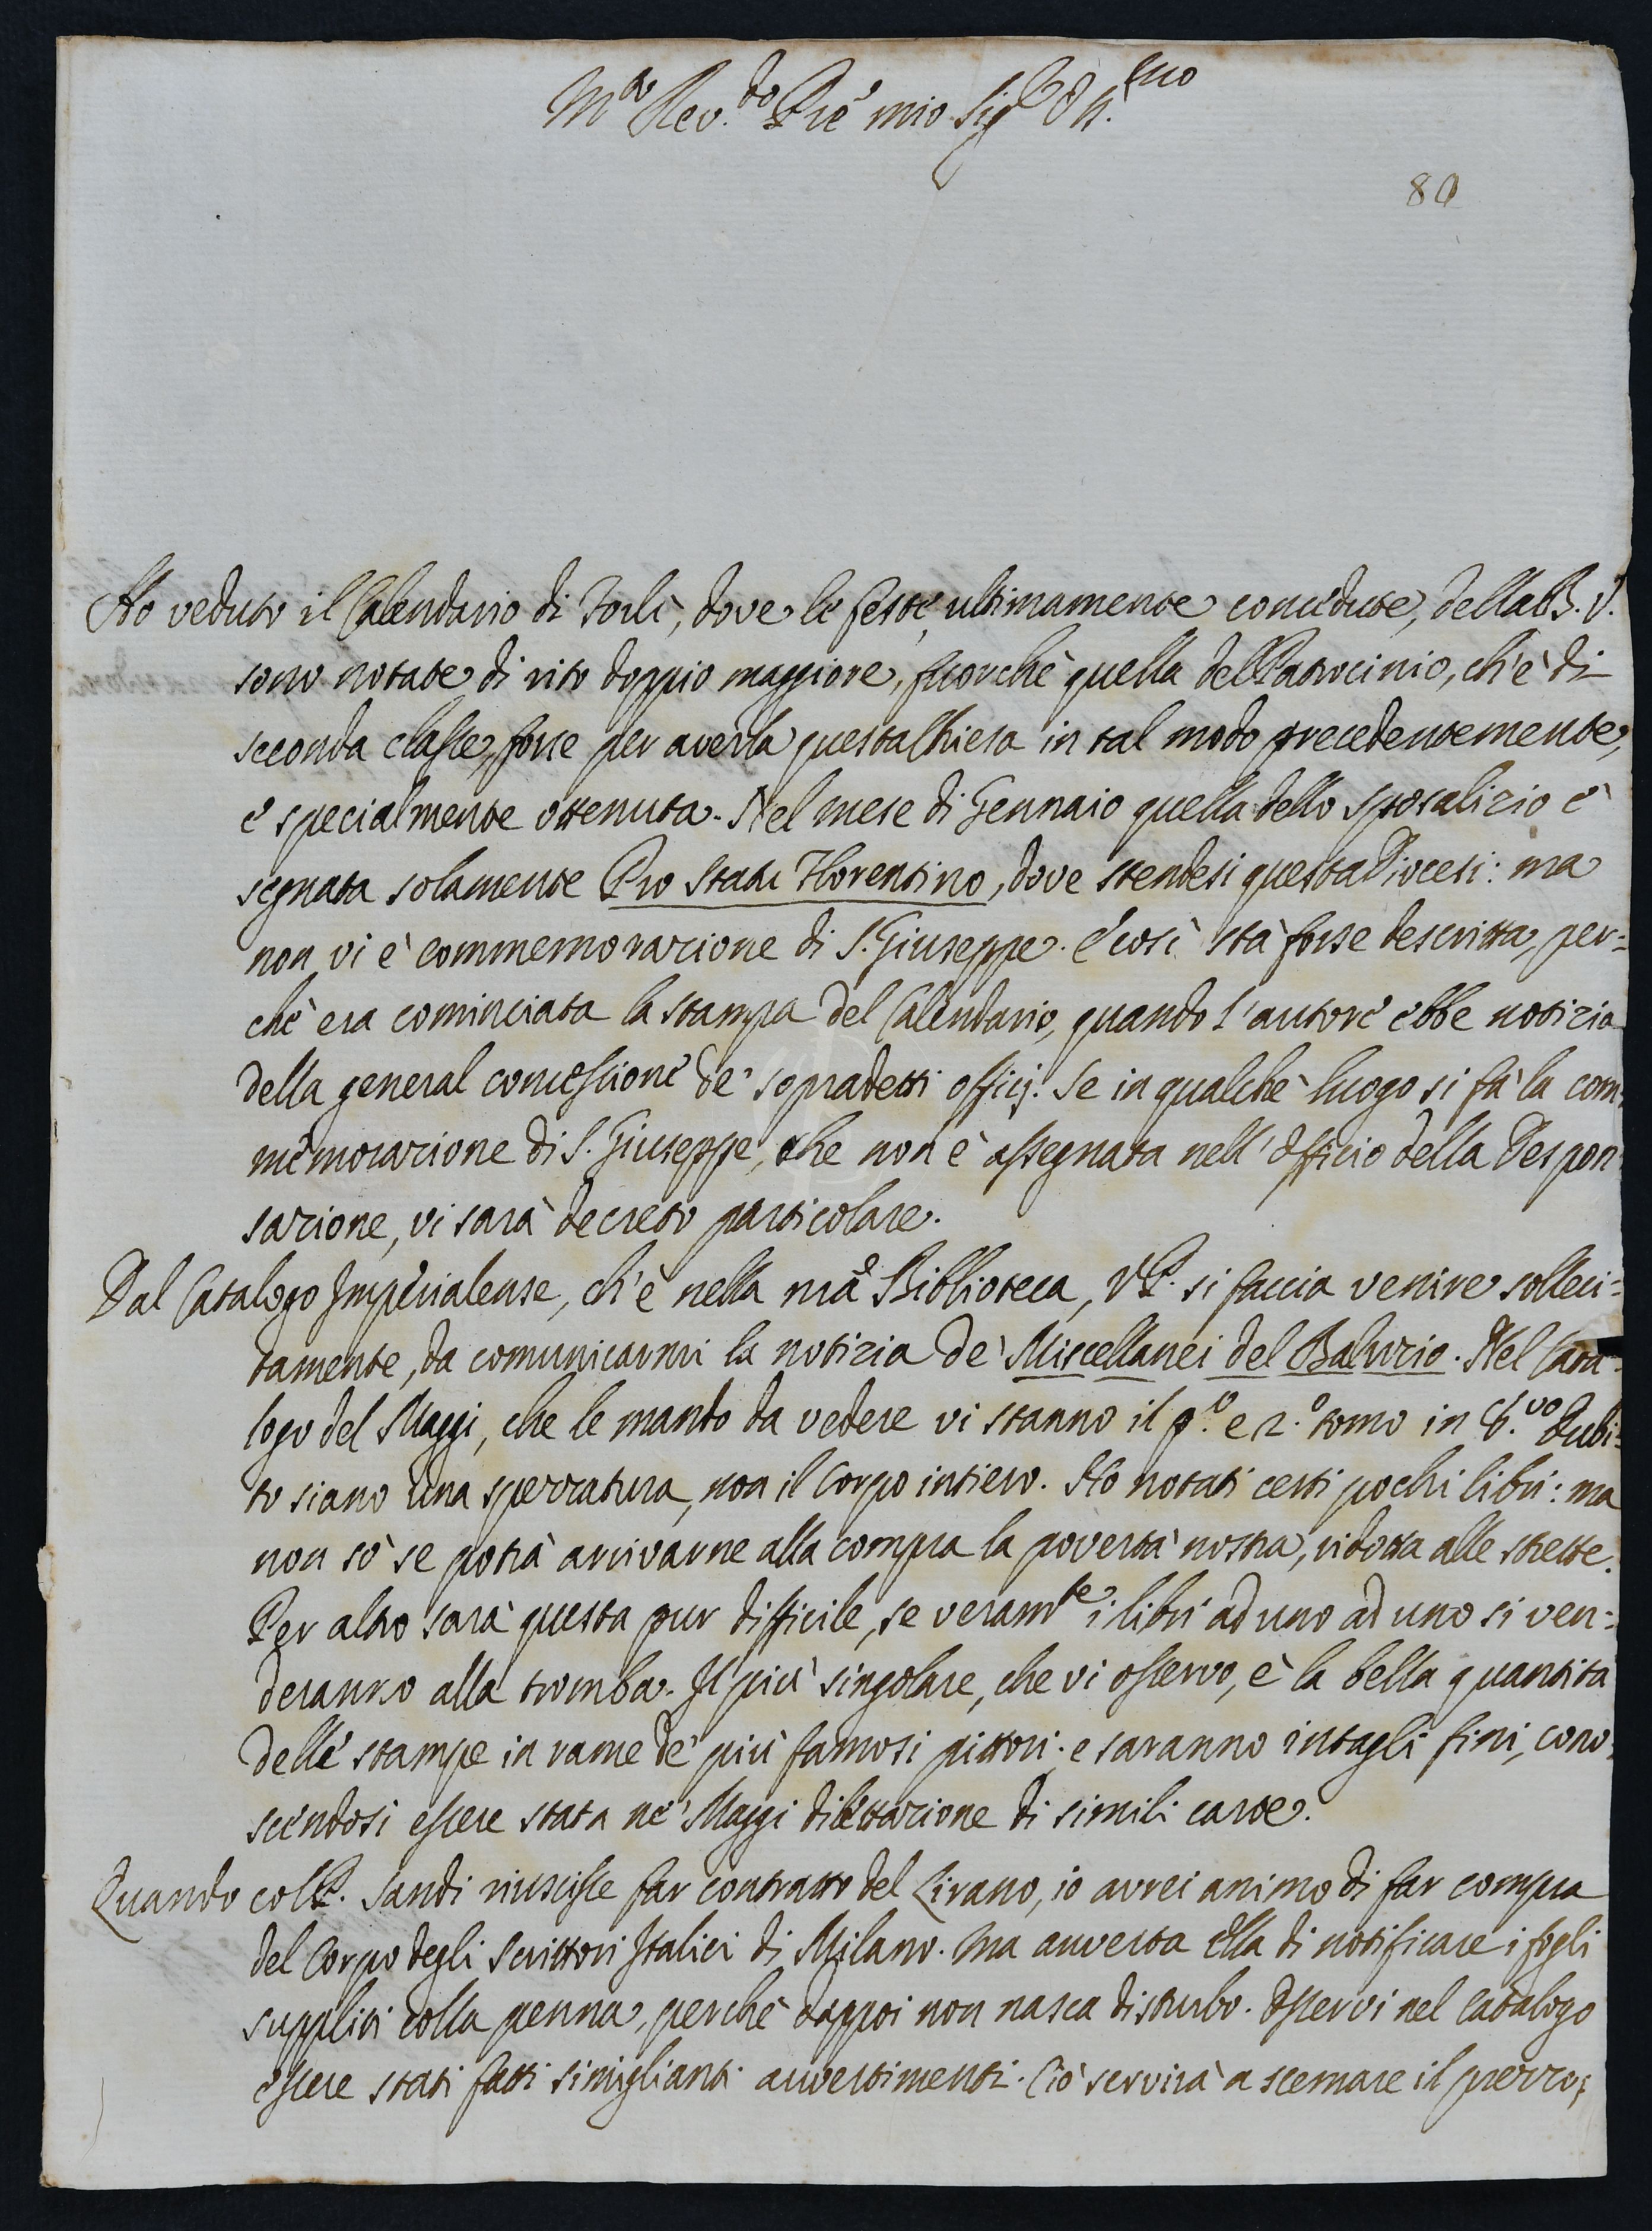 M.to Rev.do Pre mio Sig.r
80
Ho veduto il Calendario di Forlì, dove le feste, ultimamente concedute, della B. V.
sono notate di rito doppio maggiore, fuorchè quella del Patrocinio, ch'è di
seconda classe, forse per averla questa Chiesa in tal modo precedentemente,
e specialmente ottenuta. Nel mese di Gennaio quella dello Sposalizio è
segnata solamente Pro Statu Florentino, dove stendesi questa Diocesi: ma
non vi è commemorazione di S. Giuseppe. E così stà forse descritta, per=
chè era cominciata la stampa del Calendario, quando l'autore ebbe notizia
della general concessione de' sopradetti officj. Se in qualche luogo si fà la com=
memorazione di S. Giuseppe, che non è assegnata nell'Officio della Despon
sazione, vi sarà decreto particolare.
Dal Catalogo Imperialense, ch'è nella nrã Biblioteca, V.P. si faccia venire solleci=
tamente, da comunicarmi la notizia de' Miscellanei del Baluzio. Nel Cata=
logo del Maggi, che le mando da vedere vi stanno il p.o e 2.o tomo in 8.vo Dubi=
to siano una spezzatura, non il Corpo intiero. Ho notati certi pochi libri: ma
non sò se potrà arrivarne alla compra la povertà nostra, ridotta alle strette.
Per altro sarà questa pur difficile, se veram.te i libri ad uno ad uno si ven=
deranno alla tromba. Il più singolare, che vi osservo, è la bella quantità
delle stampe in rame de' più famosi pittori: e saranno intagli fini, cono=
scendosi essere stata ne' Maggi dilettazione di simili carte.
Quando col P. Sandi riuscisse far contratto del Lirano, io avrei animo di far compra
del Corpo degli Scrittori Italici di Milano. Ma avverta Ella di notificare i fogli
suppliti colla penna, perchè dappoi non nasca disturbo. Osservi nel Catalogo
essere stati fatti simiglianti avvertimenti. Ciò servirà a scemare il prezzo;